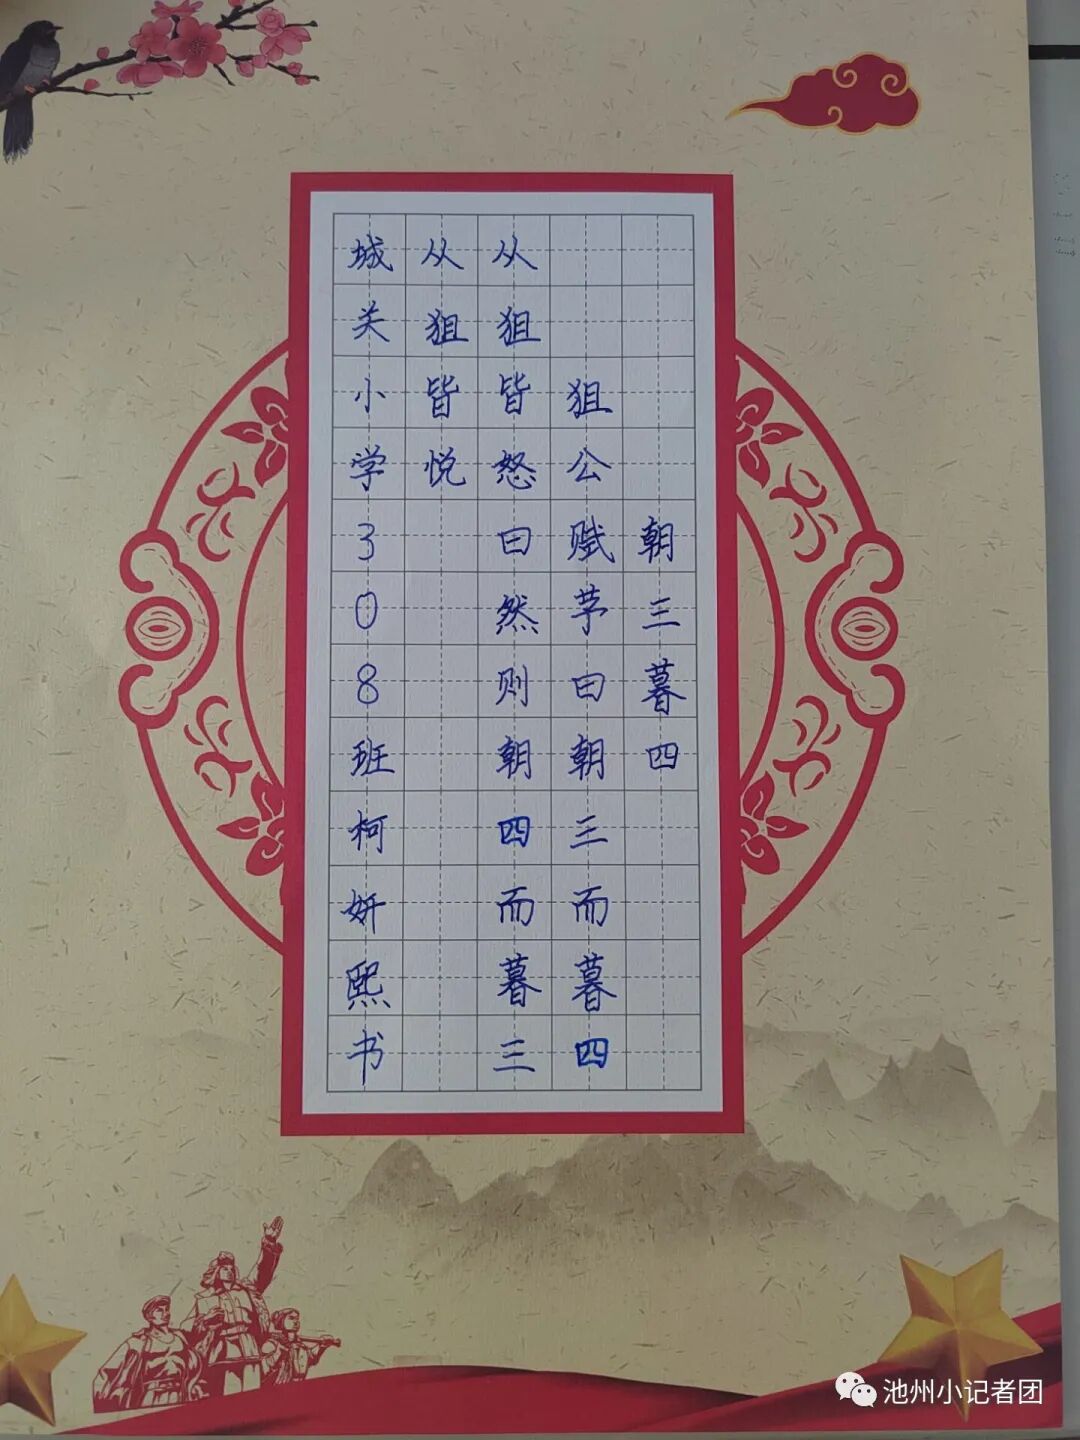 朝三暮四
狙公赋芧曰朝三而暮四
从狙皆怒曰然则朝四而暮三
从狙皆悦
城关小学308班柯妍熙书
池州小记者团